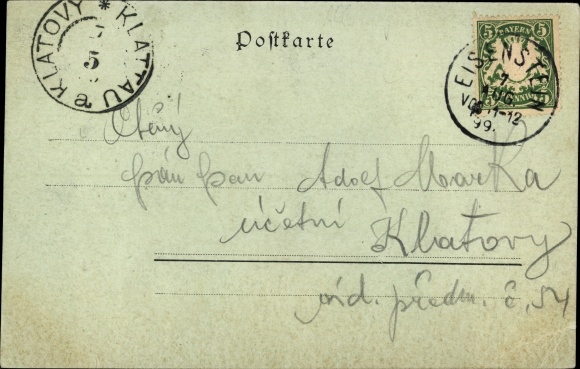 KLATOVY * KLATTAU a
5
Postkarte
5 BAYERN 5
PFENNIG
EISENSTEIN
7 AUG.
VOR. 11-12
99.
Ctěný
pán pan Adolf Marka
účetní
Klatovy
víd. předm. č. 54